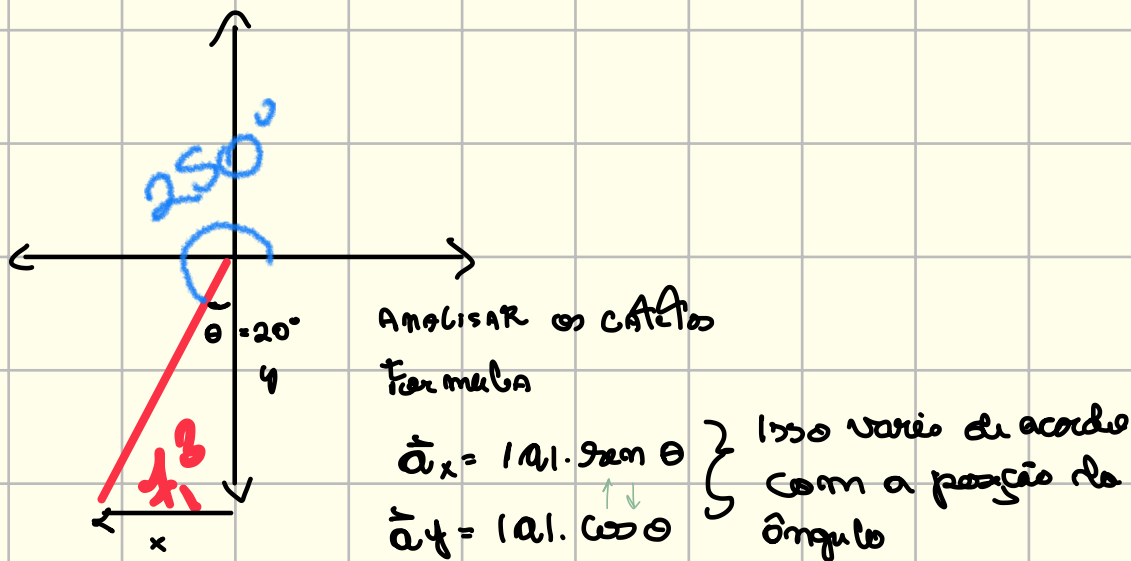 250°
θ = 20°
y
1,3
x
ANALISAR os CATETOS
Formula
a⃗x = |a|. sen θ
a⃗y = |a|. Cos θ
Isso varia de acordo
com a posição do
ângulo